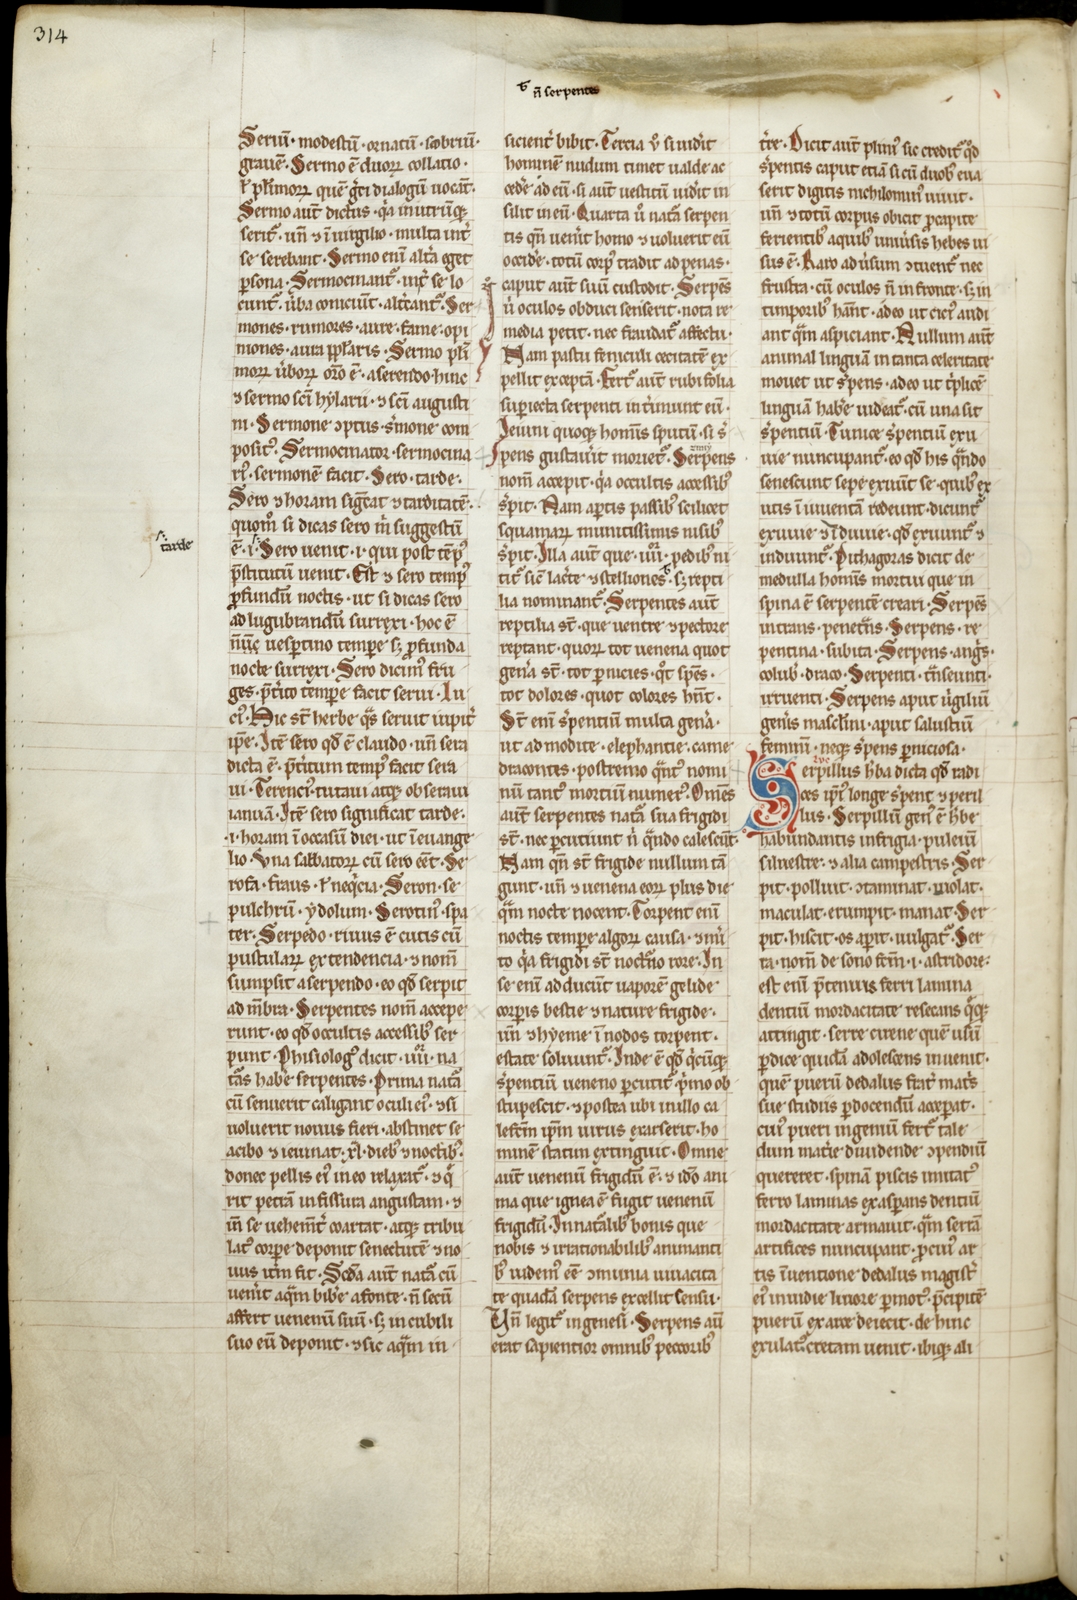 314
ñ serpentes
Seriū· modestū· ornatū· sobriū·
grauē· Sermo ē duoꝝ collatio·
ł plimoꝝ quē gͥti dialogū uocāt·
Sermo aut̄ dictus· qͥa inutrūqꝫ
serit᷑· un̄ ⁊ ī uirgilio· multa int̄
se serebant· Sermo enī alt̄a eget
ꝑsona· Sermocinant᷑· int̄ se lo
cunt᷑· ūba coniciūt· alt̄cant᷑· Ser
mones· rumores· aure· fame· opi
niones· aura pplaris· Sermo pli
moꝝ ūboꝝ orō ē· aserendo· hinc
⁊ sermo scī hylarii· ⁊ scī augusti
ni· Sermone ɔptus· s̄mone com
posit᷒· Sermocinator· sermocina
ri᷒· sermonē facit· Sero· tarde·
Sero ⁊ horam sigͨat ⁊ tarditatē·
quom̄ si dicas sero m̄ suggestū
ē· i· Sero uenit· i· qui post temp᷒
p̄stitutū uenit· Est ⁊ sero temp᷒
ꝓfundū noctis· ut si dicas sero
ad lugubrandū surrexi· hoc ē
nūc̄ uesꝑtino tempe sꝫ ꝓfunda
nocte surrexi· Sero dicim᷒ fru
ges· p̄t̄ito tempe facit serui· Lu
ci᷒· Hic st̄ herbe qͣs seruit iupit̄
ip̄e· Itē sero qd̄ ē claudo· un̄ sera
dicta ē· p̄t̄itum temp᷒ facit sera
ui· Terenci᷒· tutaui atqꝫ obseraui
ianuā· Itē sero significat tarde·
·i· horam ī occasū diei· ut ī euange
lio· Vna sabbatoꝝ cū sero eēt· Se
rosa· fraus· ł neqͥcia· Seron· se
pulchrū· ydolum· Serotin᷒· spa
ter· Serpedo· riuus ē cutis cū
pustularꝝ extendencia· ⁊ nom̄
sumpsit a serpendo· eo qd̄ serpit
ad mb̄ra· Serpentes nom̄ accepe
runt· eo qd̄ occultis accessib᷒ ser
punt· Phisiolog᷒ dicit· iiii· na
t̄as hab̄e serpentes· Prima nat̄a
cū senuerit caligant oculi ei᷒· ⁊ si
uoluerit nouus fieri· abstinet se
acibo ⁊ ieiunat· xl· dieb᷒ ⁊ noctib᷒·
donec pellis ei᷒ in eo relaxat᷑· ⁊ qͣ
rit petrā in fissura angustam· ⁊
in̄ se uehemt̄ coartat· atqꝫ tribu
lat᷒ corpe deponit senectutē ⁊ no
uus itm̄ fit· Scd̄a aut̄ nat̄a cū
uenit aqͣm bib̄e a fonte· ñ secū
affert uenenū suū· sꝫ in cubili
suo eū deponit· ⁊ sic aqͣm in
tarde
sicient̄ bibit· Tercia ū si uid̄it
hominē nudum timet ualde ac
ced̄e ad eū· si aut̄ uestitū uid̄it in
silit in eū· Quarta ū nat̄a serpen
tis qn̄ uen̄it homo ⁊ uoluerit eū
occid̄e· totū corp᷒ tradit ad penas·
caput aut̄ suū custodit· Serpēs
ū oculos obduci senserit· nota re
media petit· nec fraudat᷑ affectu·
Nam pastu feniculi cecitatē ex
pellit exceptā· Fert᷑ aut̄ rubi folia
suꝑiecta serpenti int̄imunt eū·
Ieiuni quoqꝫ homīs sputū· si s̄
pens gustau̅it moriet᷑· Serpens
nom̄ accepit· qͥa occultis accessib᷒
s̄pit· Nam aꝑtis passib᷒ scilicet
squamaꝝ munitissimis nisib᷒
s̄pit· Illa aut̄ que· iiii· pedib᷒ ni
tit᷑ sic̄ lac̄te ⁊ stelliones· sꝫ repti
lia nominant᷑· Serpentes aut̄
reptilia st̄· que uentre ⁊ pectore
reptant· quoꝝ tot uenena quot
gen̄a st̄· tot ꝑnicies· qͦt spēs·
tot dolores· quot colores hn̄t·
St̄ enī s̄pentiū multa gen̄a·
ut admodite· elephantie· came
dracontes· postremo qͣnt᷒ nomi
nū tant᷒ mortiū numer᷒· Om̄es
aut̄ serpentes nat̄a sua frigidi
st̄· nec ꝑcutiunt n̄ qͣndo calescūt·
Nam qn̄ st̄ frigide nullum tā
gunt· un̄ ⁊ uenena eoꝝ plus die
qͣm nocte nocent· Torpent enī
noctis tempe algoꝝ causa· ⁊ m̄i
to qͥa frigidi st̄ noct̄no rore· In
se enī adducūt uaporē gelide
corpis bestie ⁊ nature frigide·
un̄ ⁊ hyeme ī nodos torpent·
estate soluunt᷑· Inde ē qd̄ qͥcūqꝫ
s̄pentiū ueneno ꝑcutit᷑ pͥmo ob
stupescit· ⁊ postea ubi in illo ca
lefcm̄ ip̄m uirus exarserit· ho
minē statim extinguit· Omne
aut̄ uenenū frigidū ē· ⁊ iđo ani
ma que ignea ē fugit uenenū
frigidū· In nat̄alib᷒ bonis que
nobis ⁊ irrationabilib᷒ animanti
b᷒ uidem᷒ eē ɔmunia uiuacita
te quadā serpens excellit sensu·
Vn̄ legit᷑ in genesi· Serpens aū
erat sapientior omnib᷒ peccorib᷒
t̄re· Dicit aut̄ plini᷒ sic credit᷑ qd̄
s̄pentis caput etiā si cū duob᷒ eua
serit digitis nichilomin᷒ uiuit·
un̄ ⁊ totū corpus obicit ꝓ capite
ferientib᷒ a quib᷒ uniu̅sis hebes ui
sus ē· Raro ad ūsum ɔtuent᷑ nec
frustra· cū oculos ñ in fronte· sꝫ in
timporib᷒ hān̄t· adeo ut cici᷒ audi
ant qͣm aspiciant· Nullum aut̄
animal linguā in tanta celeritate
mouet ut s̄pens· adeo ut tͥplicē
linguā hab̄e uideat᷑· cū una sit
s̄pentiū· Tunice s̄pentiū exu
uie nuncupant᷑· eo qd̄ his qͣndo
senescunt sepe exuūt se· quib᷒ ex
utis ī iuuentā redeunt· dicunt᷑
exuuie ⁊ īduuie· qd̄ exuunt᷑ ⁊
induunt᷑· Pithagoras dicit de
medulla homīs mortui que in
spina ē serpentē creari· Serpēs
intrans· penet̄ns· Serpens· re
pentina· subita· Serpens· angͥs·
colub᷒· draco· Serpenti· tͣnseunti·
irruenti· Serpens aput ūgiliū
gen̄is masclini· aput salustiū
femini· neqꝫ s̄pens ꝑniciosa·
Serpillus h̄ba dicta qd̄ radi
ces ip̄i᷒ longe s̄pent ⁊ ꝑeril
lus· Serpillū gen᷒ ē h̄be
habundantis in frigia· puleiū
siluestre· ⁊ alia campestris· Ser
pit· polluit· ɔtaminat· uiolat·
maculat· erumpit· manat· Ser
pit· hiscit· os aꝑit· uulgat᷑· Ser
ra· nom̄ de sono fcm̄· i· astridore·
est enī p̄tenuis ferri lamina
dentiū mordacitate resecans qͥcqͥ
attingit· serre cirene quē usū
ꝑdice quidā adolescens inuenit·
quē puerū dedalus frat̄ mat̄s
sue studiis ꝑdocendū acceꝑat·
cui᷒ pueri ingeniū fert᷑ tale·
dum mat̄ie diuidende ɔpendiū
quereret· spinā piscis imitat᷒
ferro laminas exasꝑans dentiū
mordacitate armauit· qͣm serrā
artifices nuncupant· ꝓ cui᷒ ar
tis īuentione dedalus magist̄
ei᷒ inuidie liuore ꝑmot᷒· p̄cipitē
puerū ex arce deiecit· de hinc
exulat᷒ cretam uenit· ibiqꝫ ali